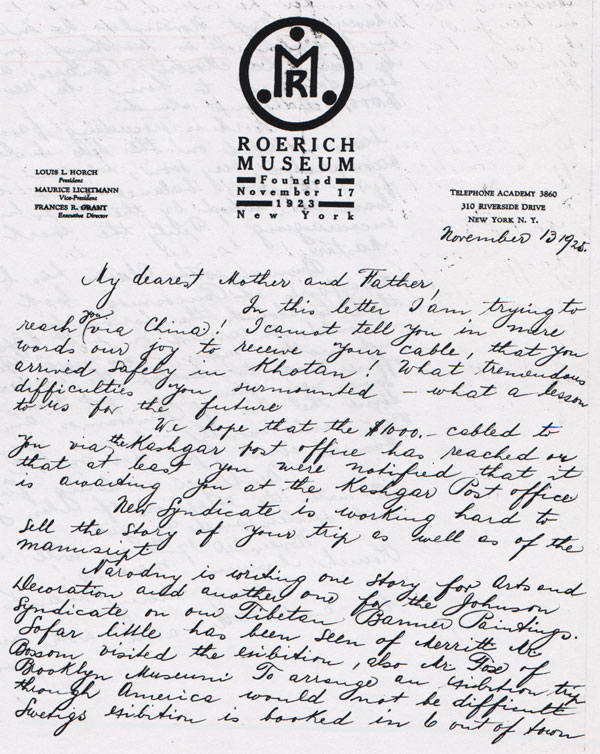 MR
ROERICH
MUSEUM
Founded
November 17
1923
New York
LOUIS L. HORCH
President
MAURICE LICHTMANN
Vice-President
FRANCES R. GRANT
Executive Director
TELEPHONE ACADEMY 3860
310 RIVERSIDE DRIVE
NEW YORK N. Y.
November 13 1925.
My dearest Mother and Father,
In this letter I am trying to
reach you (via China)! I cannot tell you in mere
words our joy to receive your cable, that you
arrived safely in Khotan! What tremendous
difficulties you surmounted – what a lesson
to us for the future
We hope that the $1000.– cabled to
you via the Kashgar post office has reached or
that at least you were notified that it
is awaiting you at the Kashgar Post office
New Syndicate is working hard to
sell the story of your trip as well as of the
manuscript
Narodny is writing one story for Arts and
Decoration and another one for the Johnson
Syndicate on our Tibetan Banner Paintings.
Sofar little has been seen of Merritt. Mr.
Bossom visited the exibition, also Mr. of
Brooklyn Museum: To arrange an exibition trip
through America would not be difficult
Svetigs exibition is booked in 6 out of town